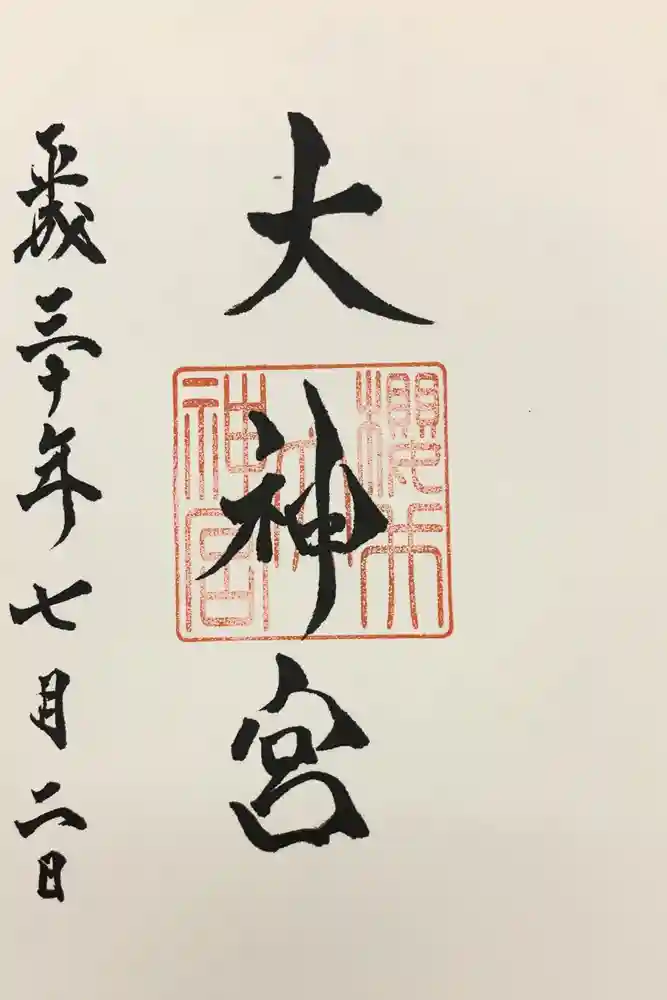 大神宮
櫻
大
神宮
平成三十年七月二日